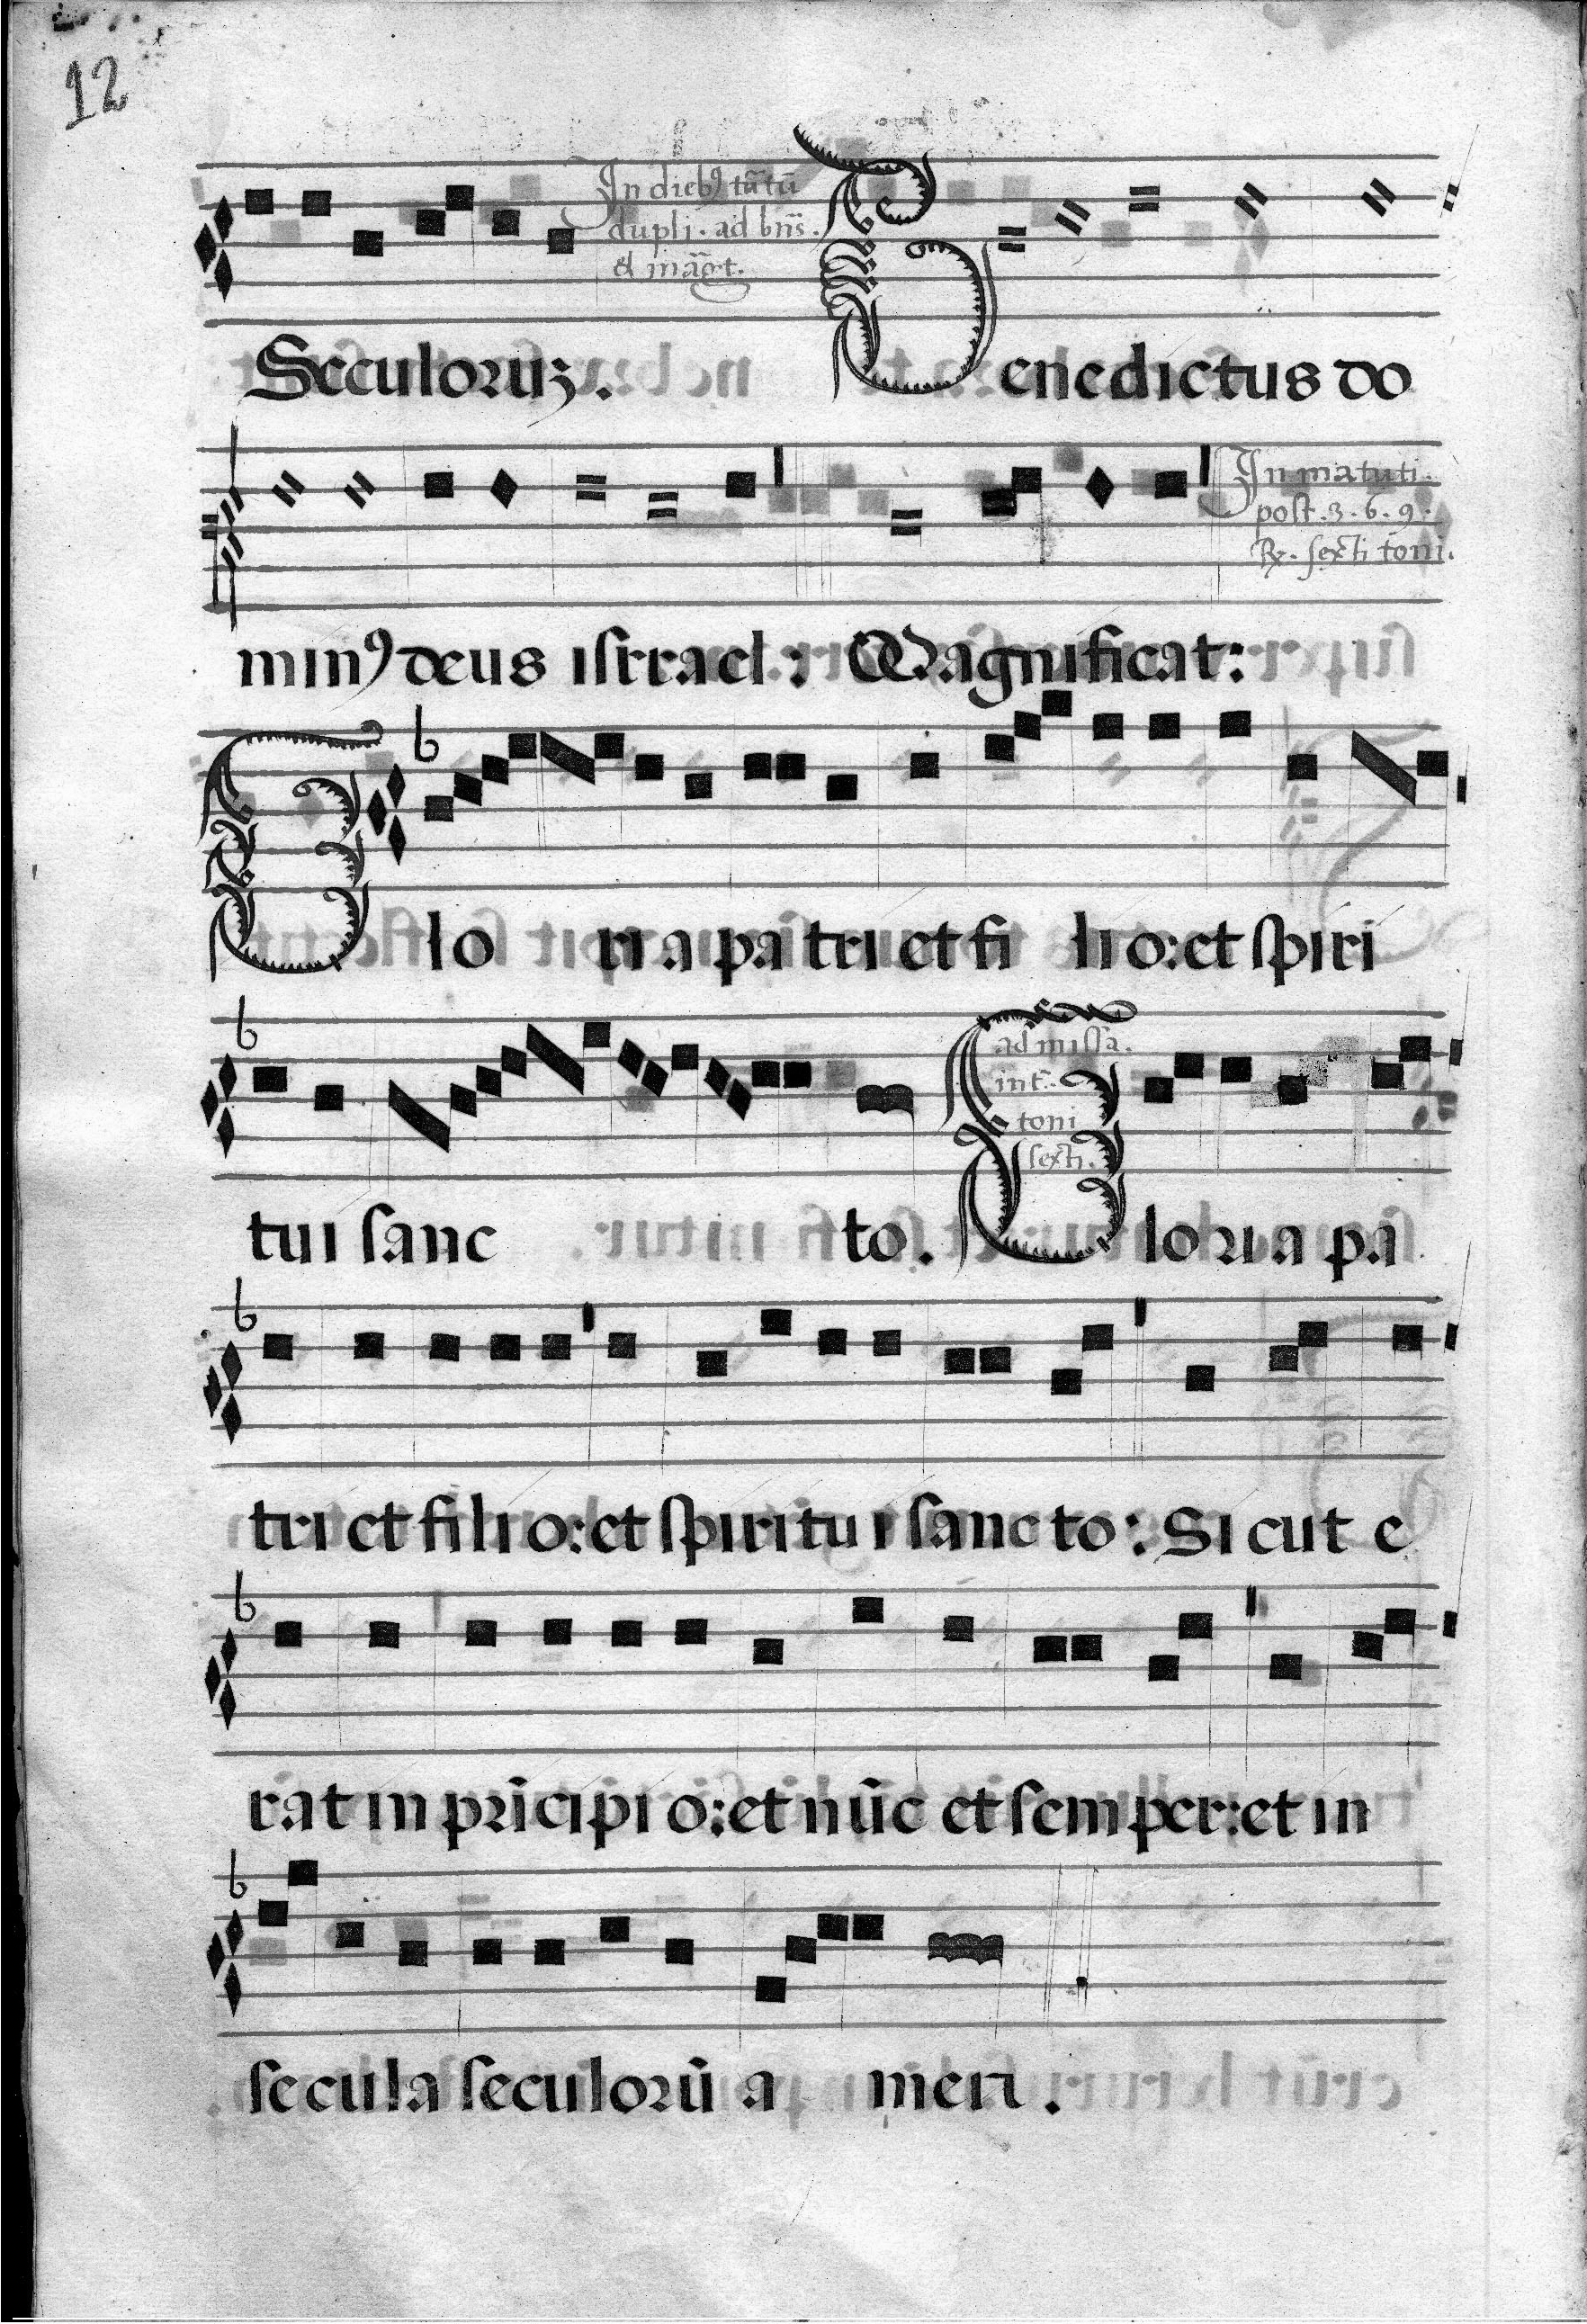 12
In dieb⁹ tātū
dupli. ad bn̄s.
et māḡt.
Seculoruꝫ. Benedictus do
min⁹ deus israel: Magnificat:
In matuti.
post .3. 6. 9.
℞. sexti toni.
Glo ri a pa tri et fi li o: et spiri
tui sanc to. Glori a pa
ad missa.
int̄.
toni
sexti.
tri et fili o: et spiritu i sanc to: Si cut e
rat in prīcipi o: et nūc et semper: et in
secula seculorū a men.